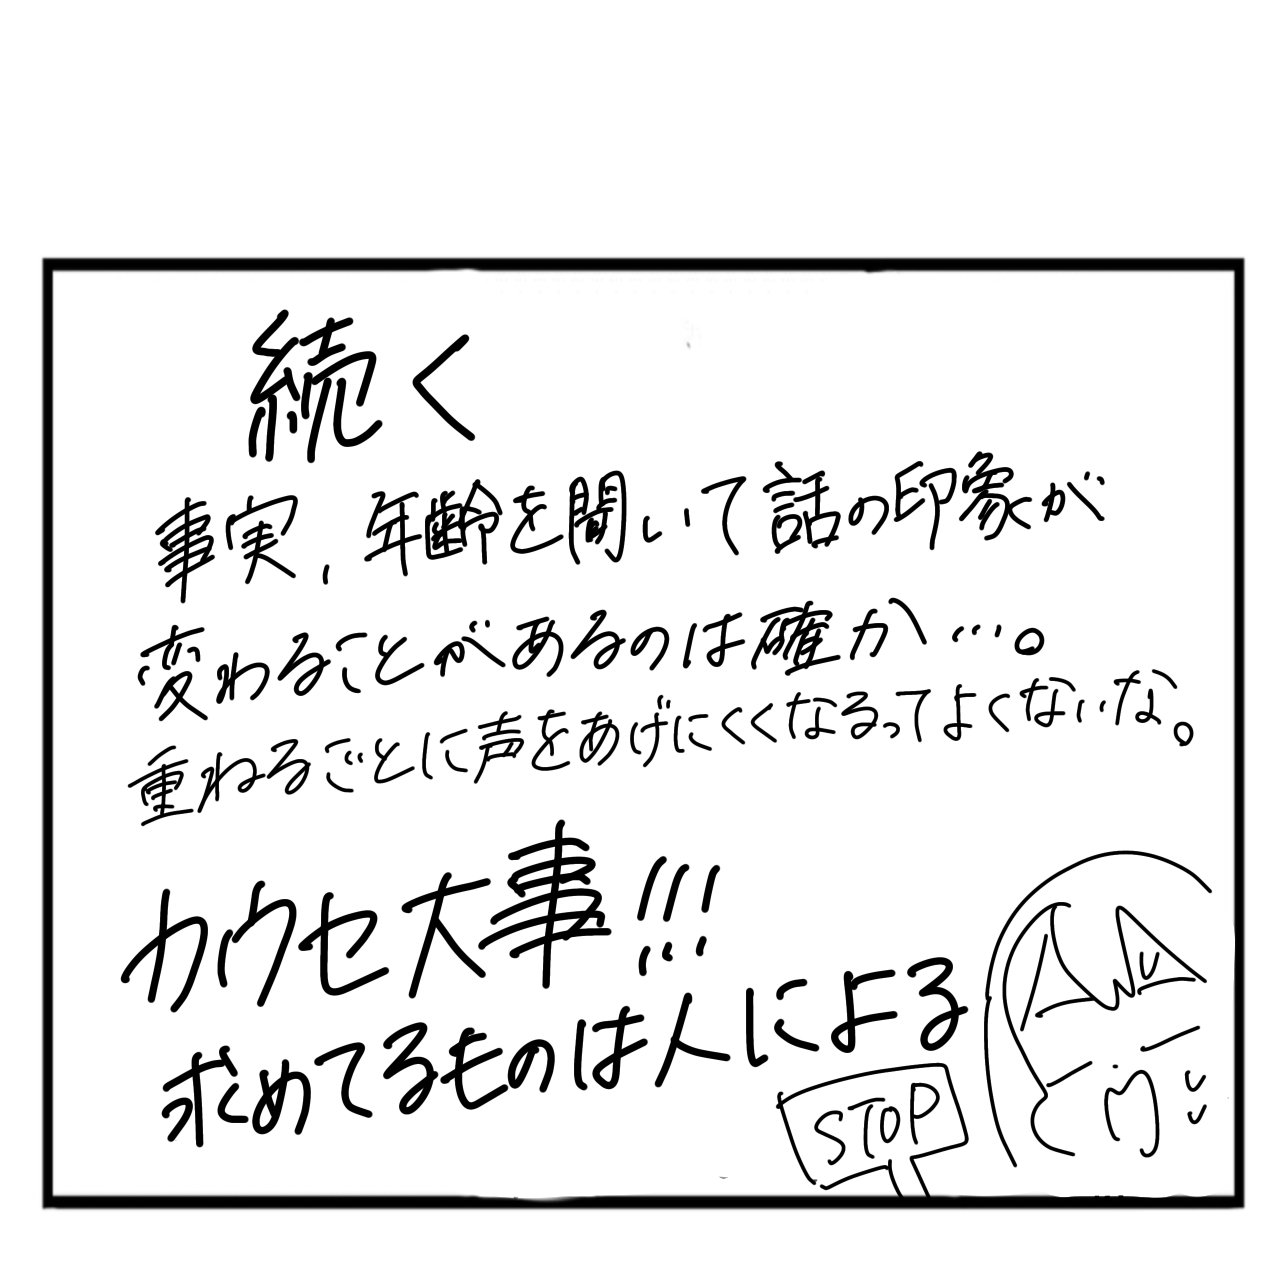 続く
事実、年齢を聞いて話の印象が
変わることがあるのは確か…。
重ねるごとに声をあげにくくなるってよくないな。
カウセ大事!!!
求めてるものは人による
STOP